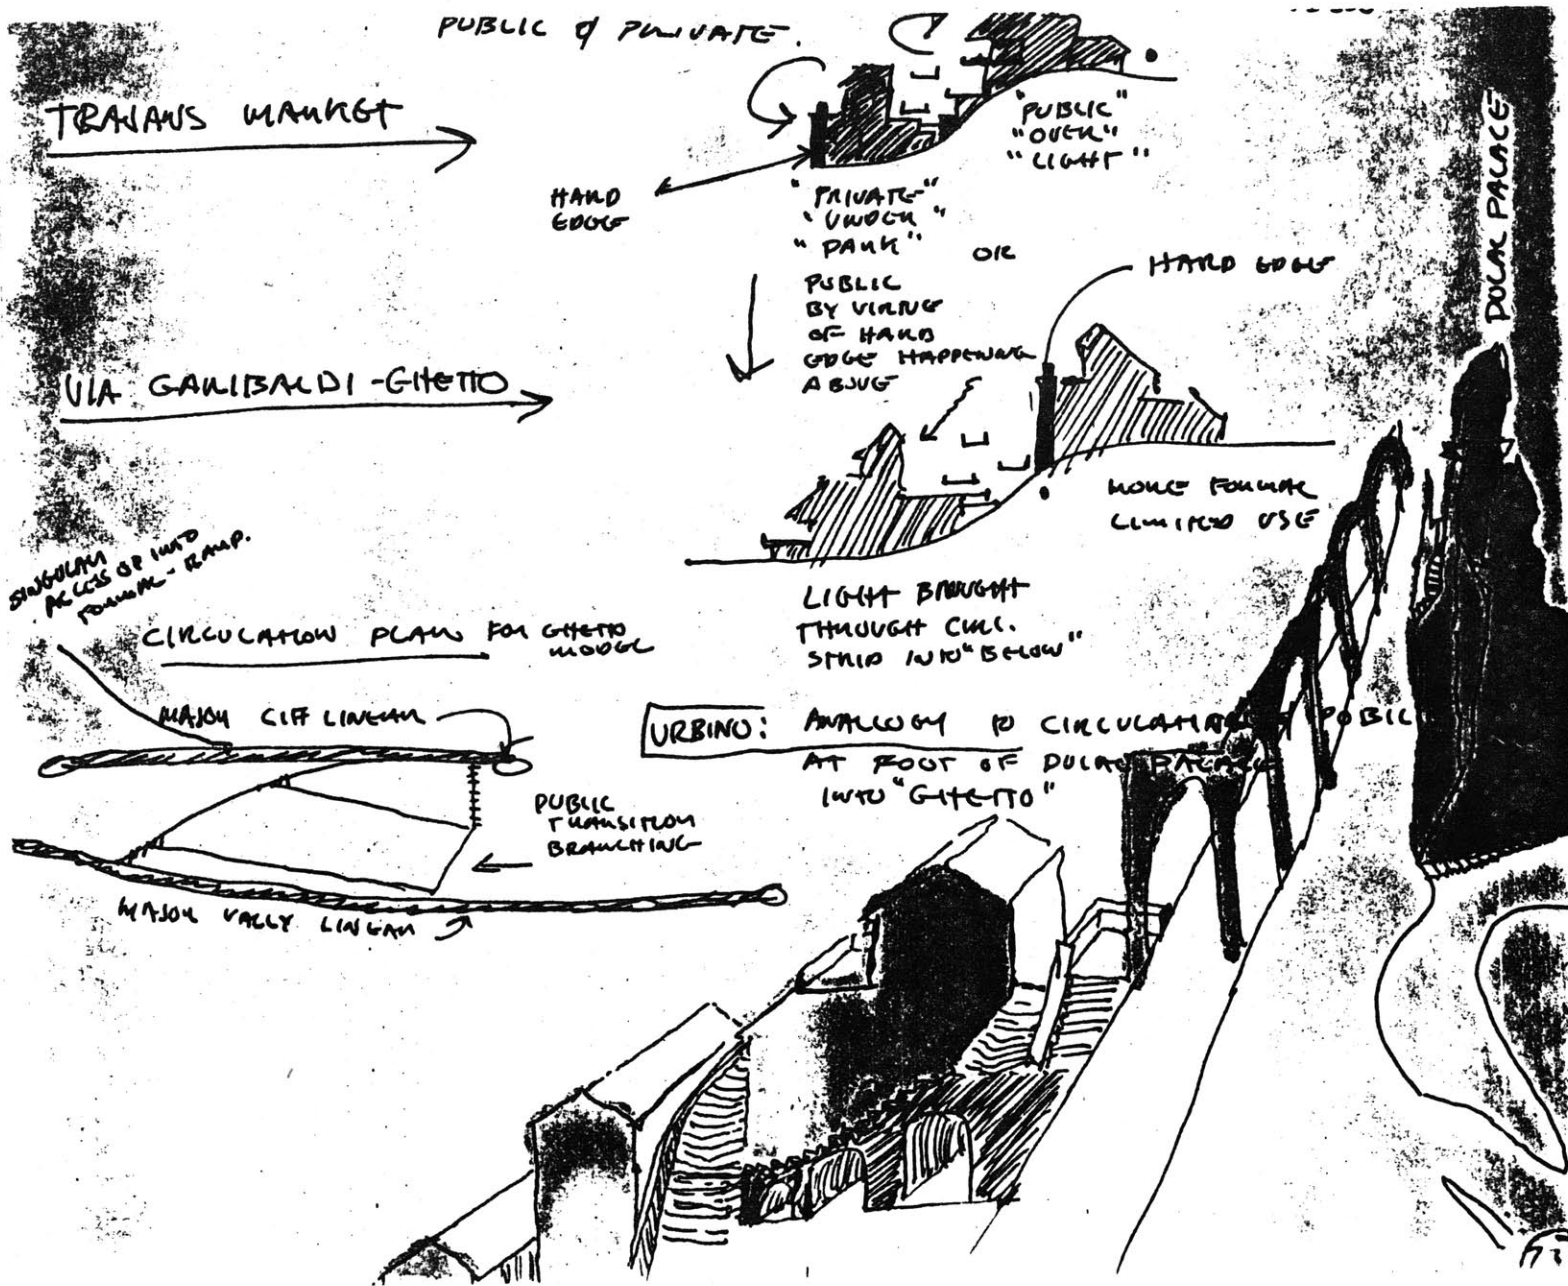 PUBLIC & PRIVATE.
TRAJANS MARKET
HARD
EDGE
"PUBLIC"
"OVER"
"LIGHT"
"PRIVATE"
"UNDER"
"DARK"
OR
PUBLIC
BY VIRTUE
OF HARD
EDGE HAPPENING
ABOVE
HARD EDGE
DUCAL PALACE
VIA GARIBALDI - GHETTO
MORE FORMAL
LIMITED USE
SINGULAR
ACCESS UP INTO
FORMAL - RAMP.
LIGHT BROUGHT
THROUGH CIRC.
STRIP INTO "BELOW"
CIRCULATION PLAN FOR GHETTO
MODEL
MAJOR CIFF LINEAR
PUBLIC
TRANSITION
BRANCHING
MAJOR VALLY LINEAR
URBINO: ANALLOGY TO CIRCULATION PUBLIC
AT FOOT OF DUCAL PALACE
INTO "GHETTO"